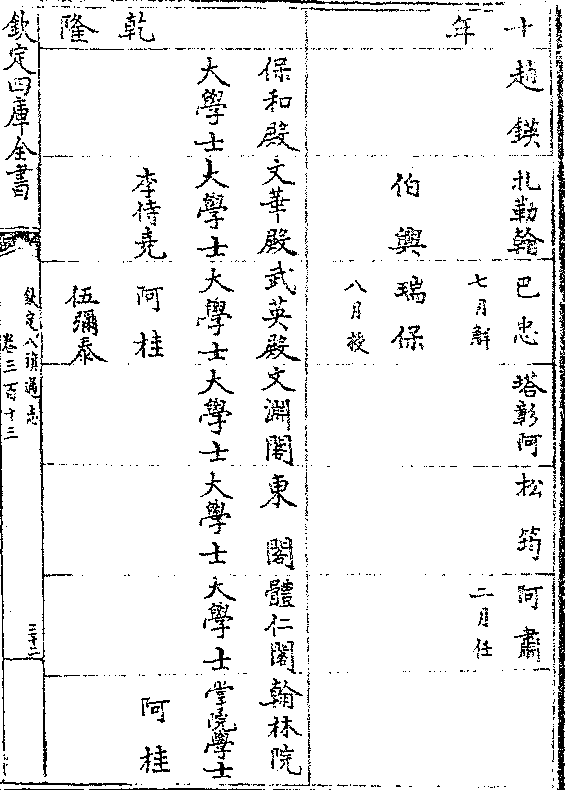 十年
趙鍈
扎勒翰
巴忠
七月解
塔彰阿
松筠
阿肅
二月任
伯興
瑞保
八月授
乾隆
保和殿
大學士
文華殿
大學士
武英殿
大學士
文淵閣
大學士
東閣
大學士
體仁閣
大學士
翰林院
掌院學士
李侍堯
阿桂
伍彌泰
阿桂
欽定四庫全書
欽定八旗通志
卷三百十三